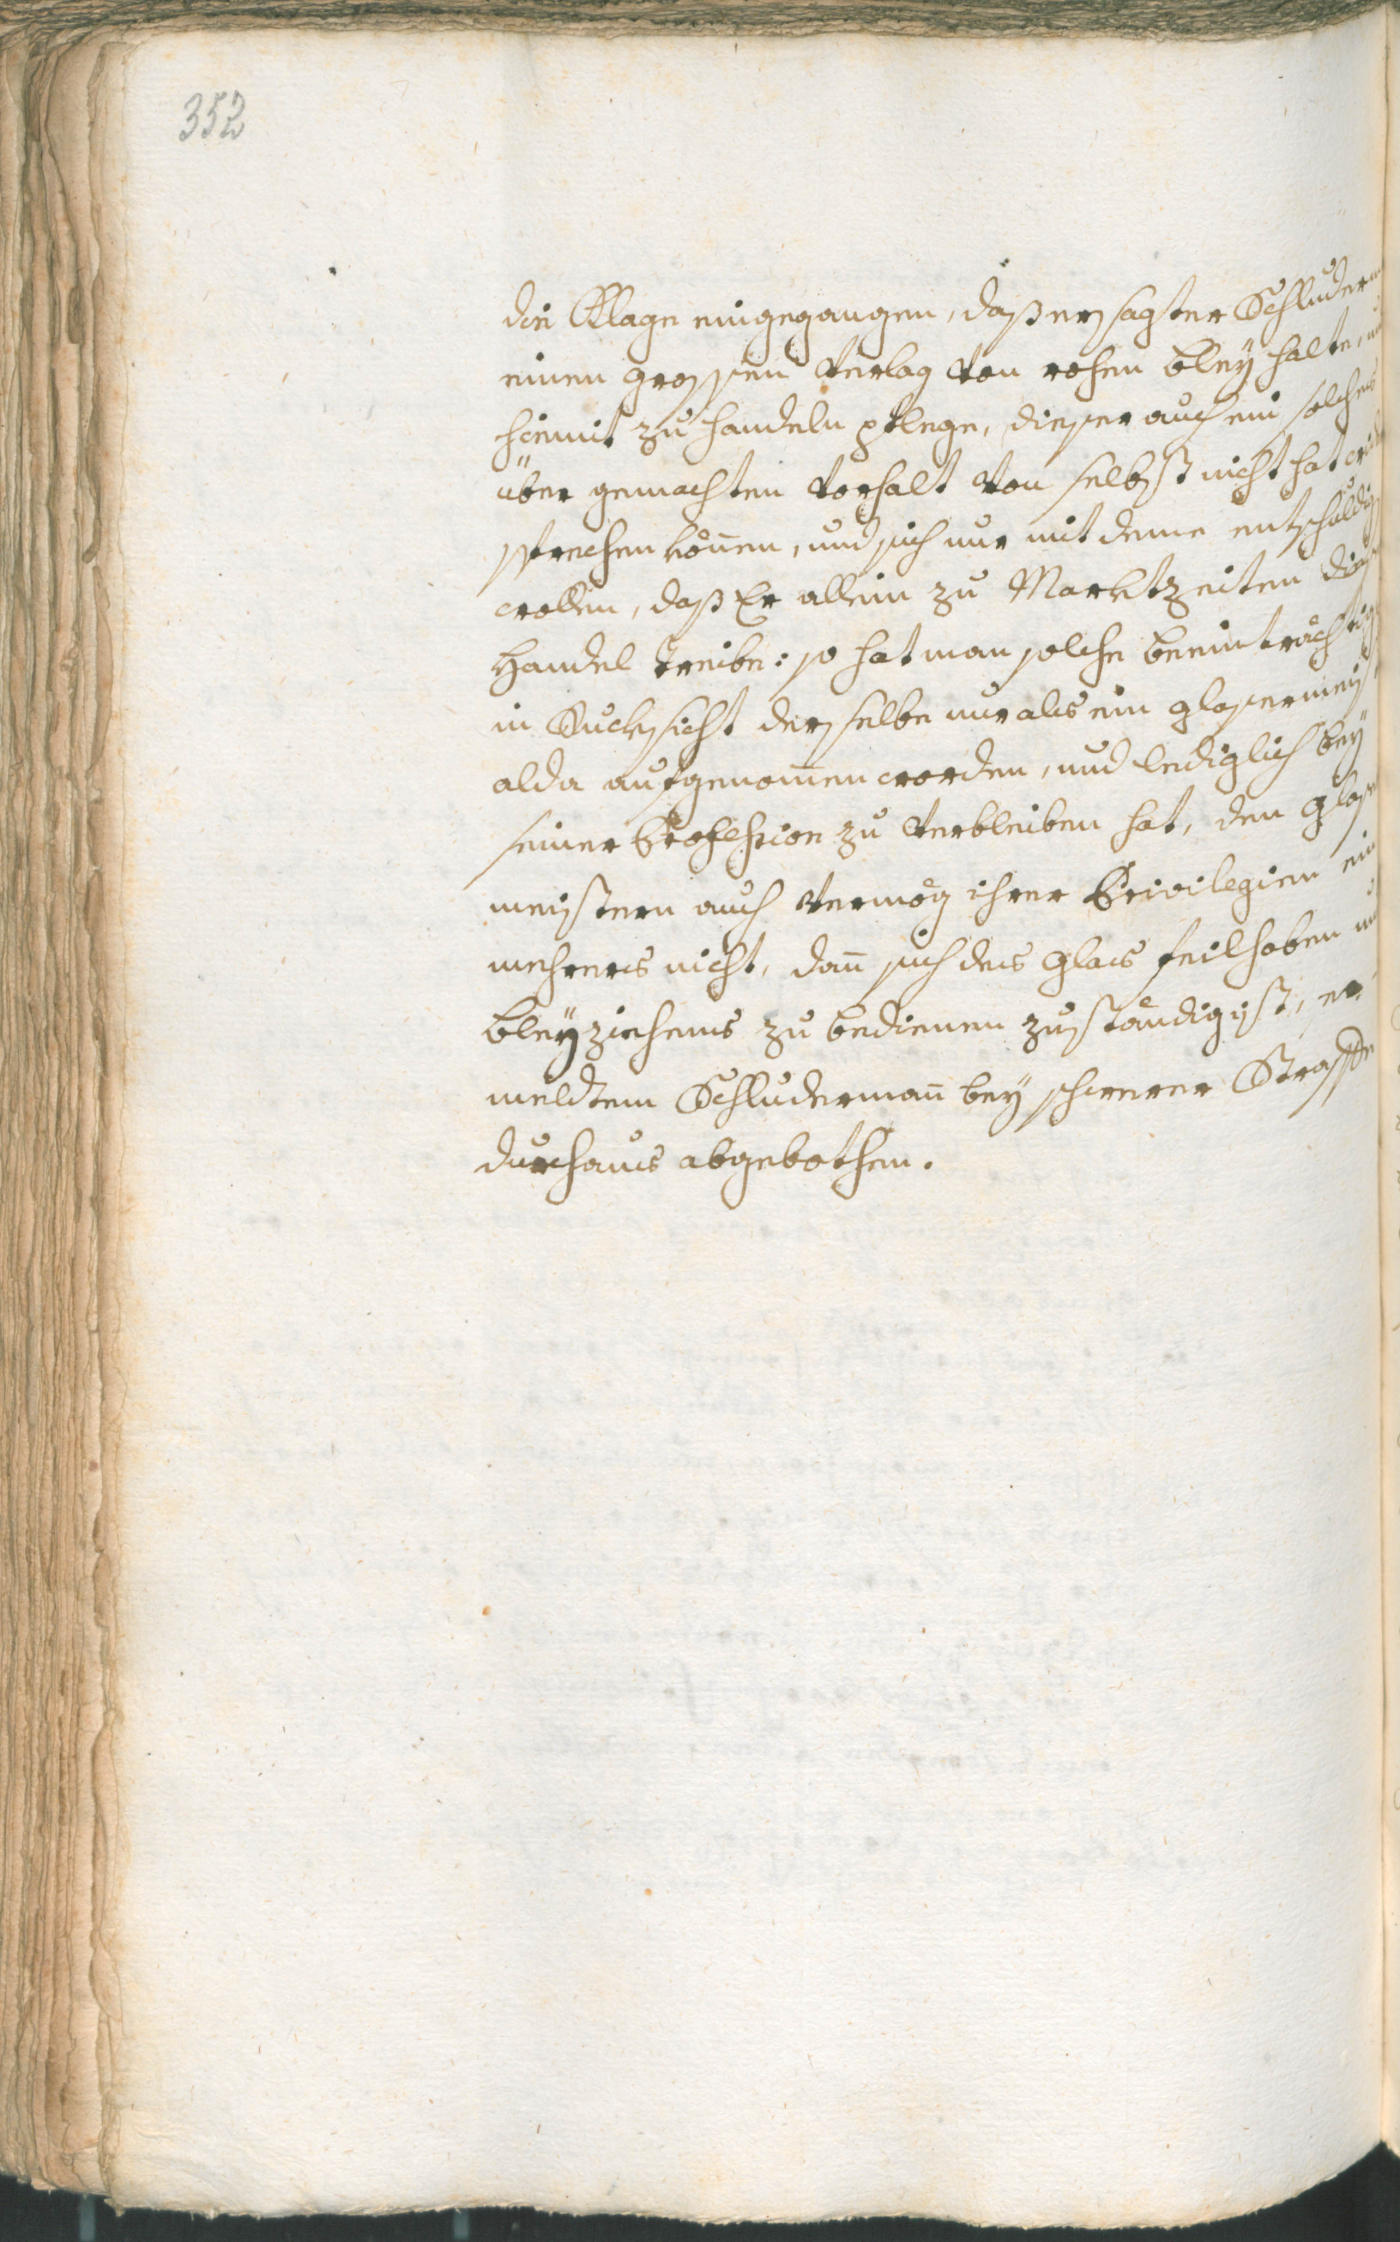 352
die Klage eingegangen, daß ersagter Schluderm
einen grossen Verlag von rohen bley halte, und
hiemit zu handeln pflege, dieser auch ein solches
über gemachten Vorhalt von selbst nicht hat
sprechen können, und sich nur mit deme entschuldig
wollen, daß Er allein zu Marktzeiten dies
Handel treibe: so hat man solche beeinträchtig
in Rucksicht derselbe nur als ein glasermeist
alda aufgenom̄en worden, und lediglich bey
seiner Profession zu verbleiben hat, den glaser
meistern auch vermög ihrer Privilegien ein
mehrers nicht, dan̄ sich des glas feilhaben und
bleyziehens zu bedienen zuständig ist, er
meldtem Schluderman̄ bey schwerer Straffe
durchaus abgebothen.